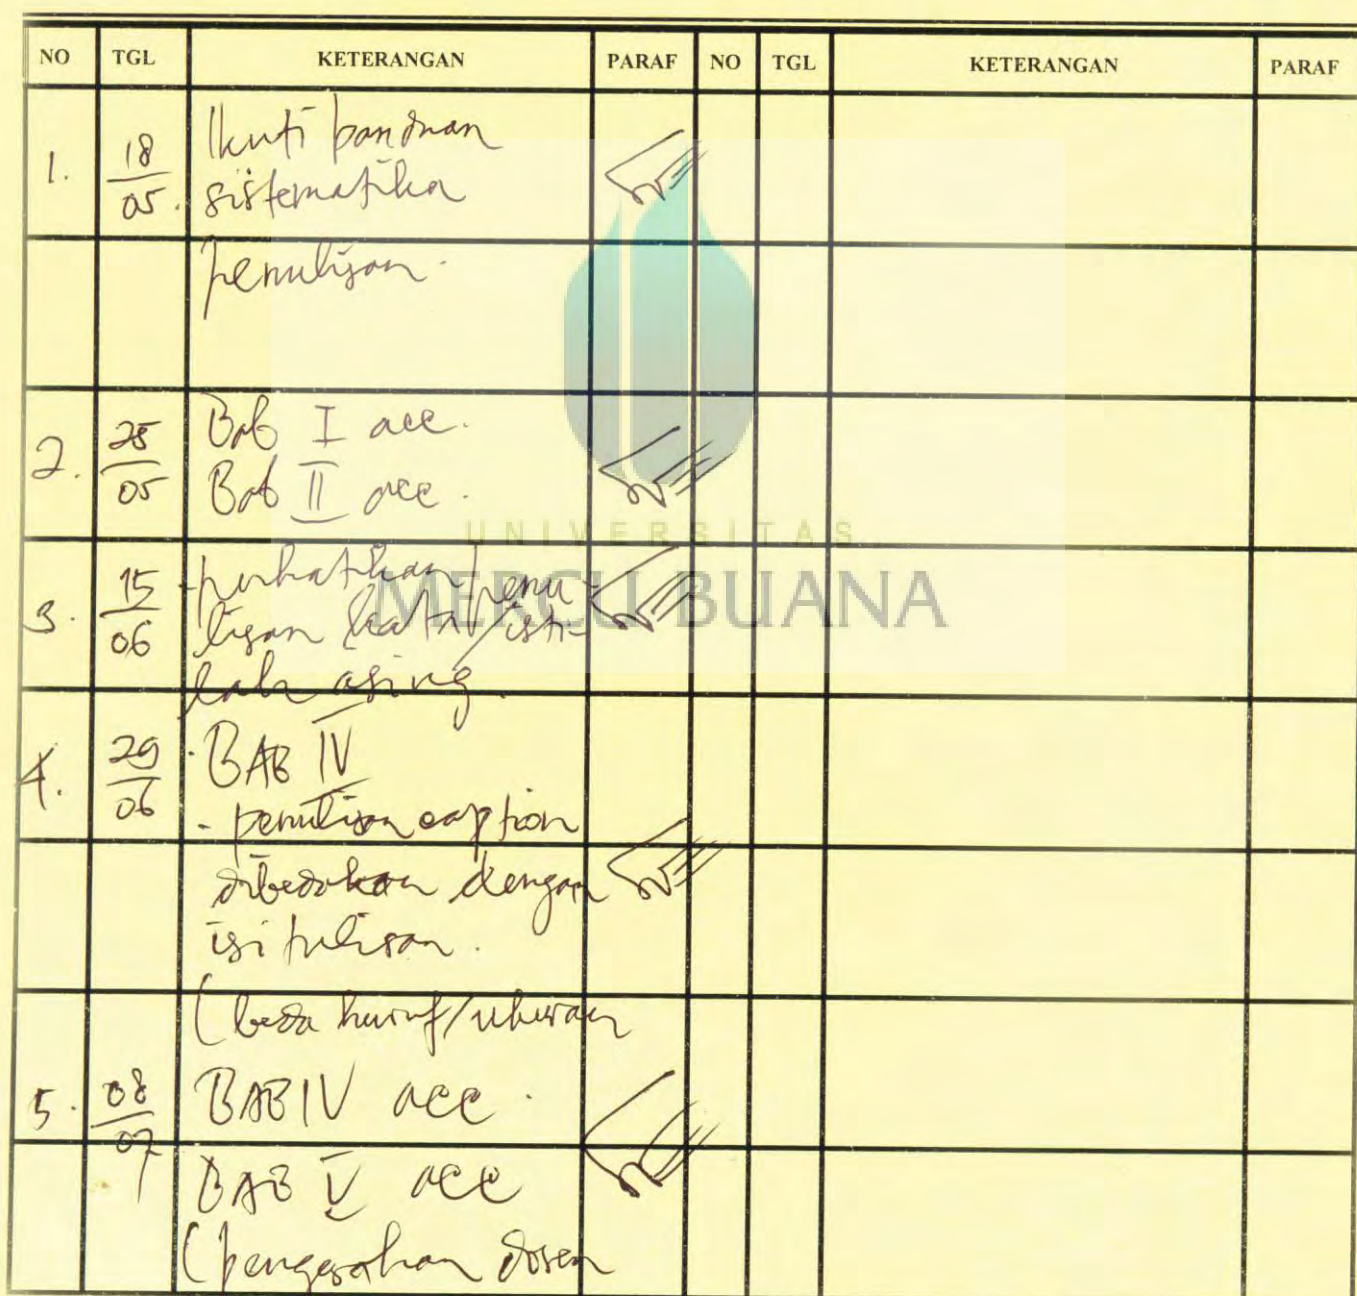 NO TGL KETERANGAN PARAF NO TGL KETERANGAN PARAF
1. 18/05. Ikuti panduan
sistematika
penulisan.
2. 25/05 Bab I acc.
Bab II acc.
UNIVERSITAS
MERCU BUANA
3. 15/06 - perhatikan penu-
lisan kata/isti-
lah asing.
4. 29/06 . BAB IV
- penulisan caption
dibedakan dengan
isi tulisan.
(beda huruf/ukuran
5. 08/07 BAB IV acc.
BAB V acc
(pengesahan dosen